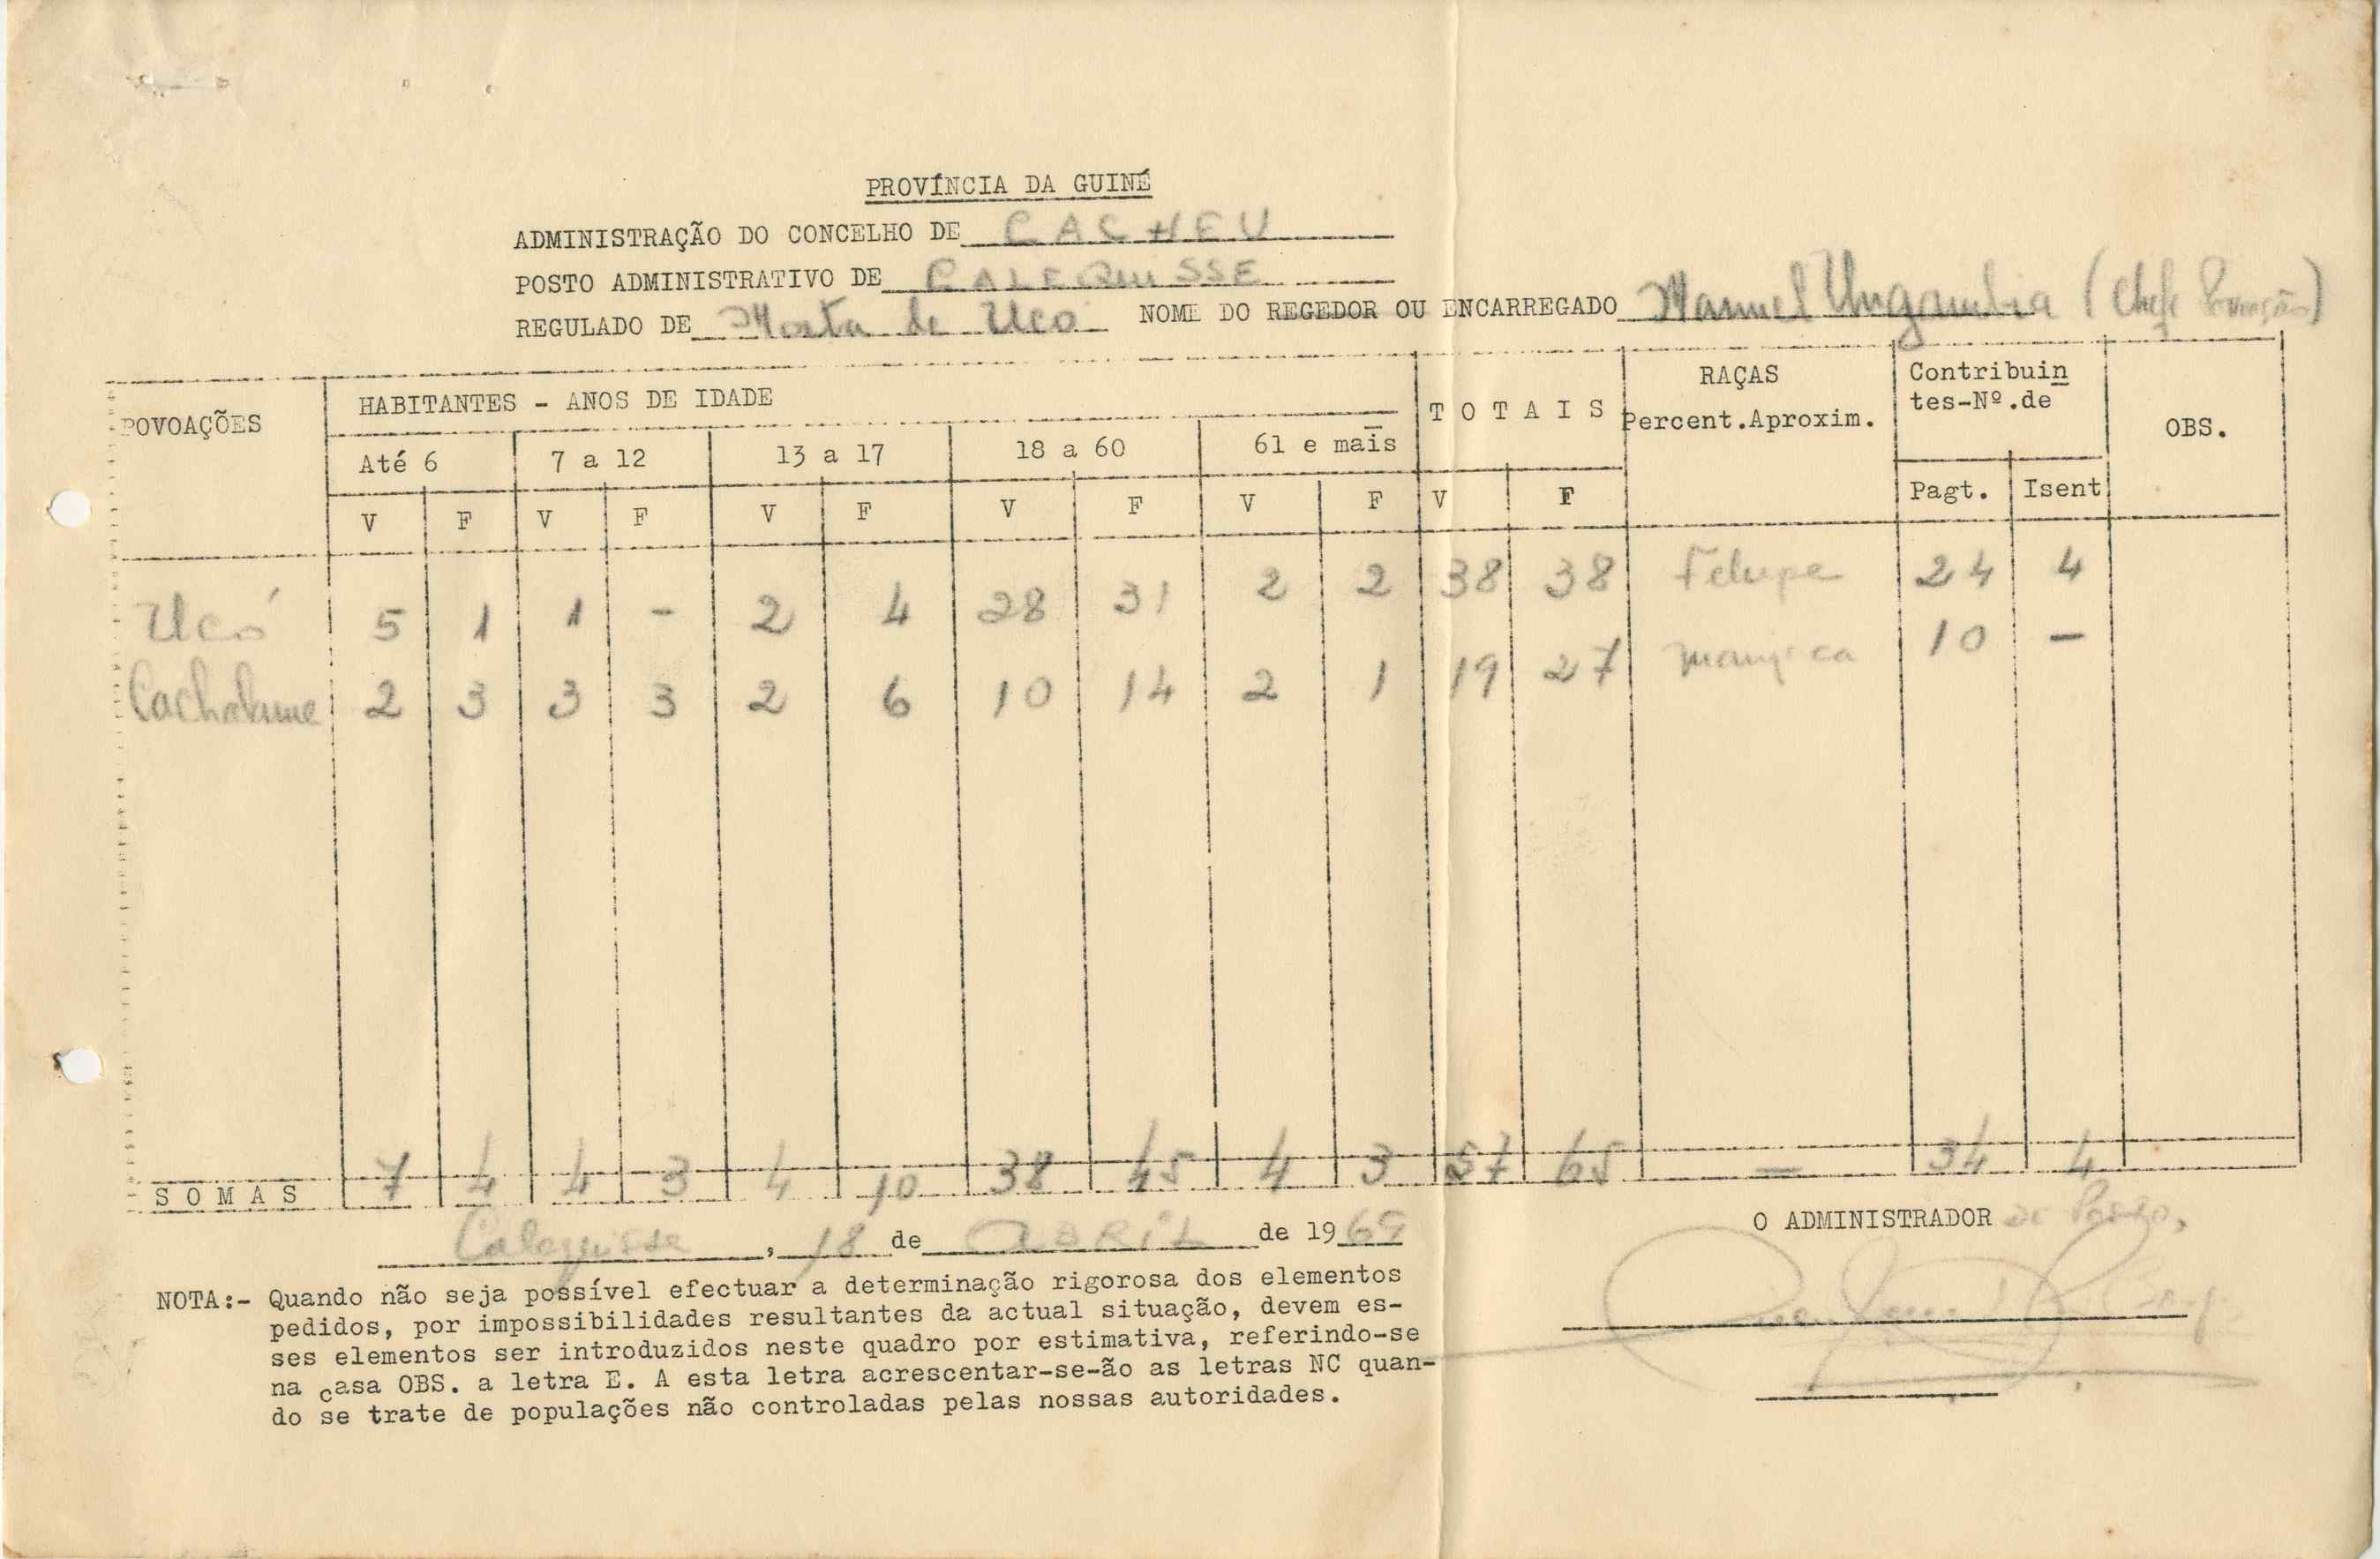 PROVÍNCIA DA GUINÉ
ADMINISTRAÇÃO DO CONCELHO DE CACHEU
POSTO ADMINISTRATIVO DE CALEQUISSE
REGULADO DE Mata de Ucó NOME DO REGEDOR OU ENCARREGADO Manuel Ungambia (Chefe Povoação)
POVOAÇÕES HABITANTES - ANOS DE IDADE T O T A I S RAÇAS Contribuin
Percent.Aproxim. tes-Nº.de OBS.
Até 6 7 a 12 13 a 17 18 a 60 61 e mais
V F V F V F V F V F V F Pagt. Isent
Ucó 5 1 1 - 2 4 28 31 2 2 38 38 Felupe 24 4
2 3 3 3 2 6 10 14 2 1 19 27 manjaca 10 -
S O M A S 7 4 4 3 4 10 38 45 4 3 57 65 - 34 4
Calequisse, 18 de ABRIL de 1969
O ADMINISTRADOR de Posto,
NOTA:- Quando não seja possível efectuar a determinação rigorosa dos elementos
pedidos, por impossibilidades resultantes da actual situação, devem es-
ses elementos ser introduzidos neste quadro por estimativa, referindo-se
na casa OBS. a letra E. A esta letra acrescentar-se-ão as letras NC quan-
do se trate de populações não controladas pelas nossas autoridades.